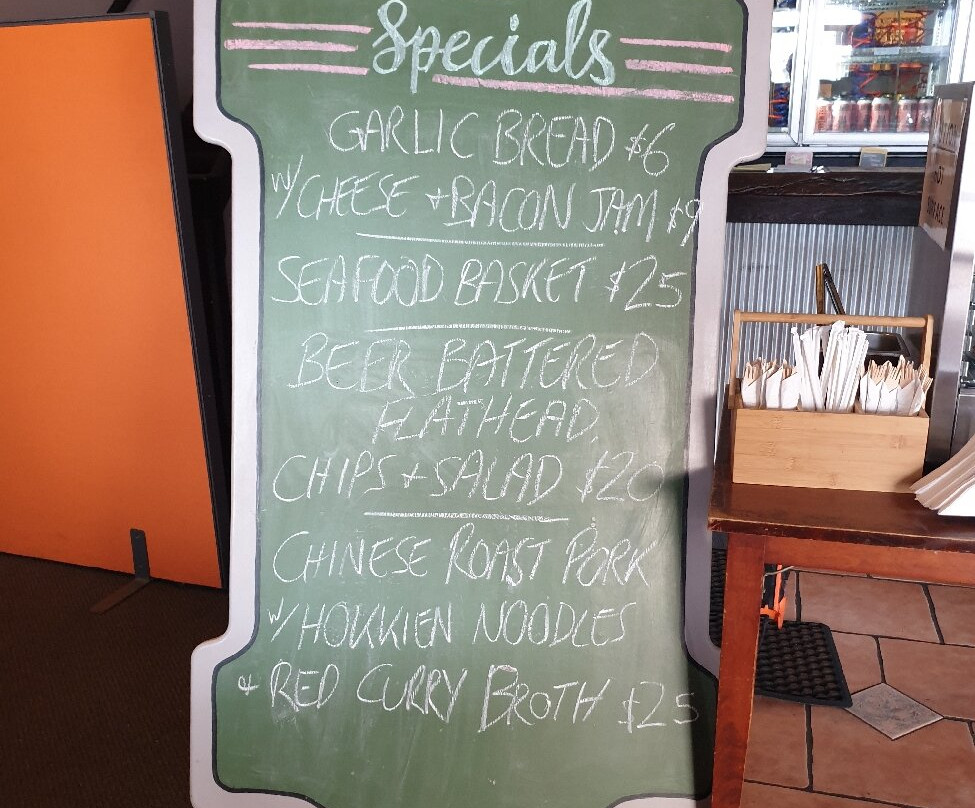 Specials
GARLIC BREAD $6
W/ CHEESE + BACON JAM $9
SEAFOOD BASKET $25
BEER BATTERED
FLATHEAD,
CHIPS + SALAD $20
CHINESE ROAST PORK
W/ HOKKIEN NOODLES
& RED CURRY BROTH $25